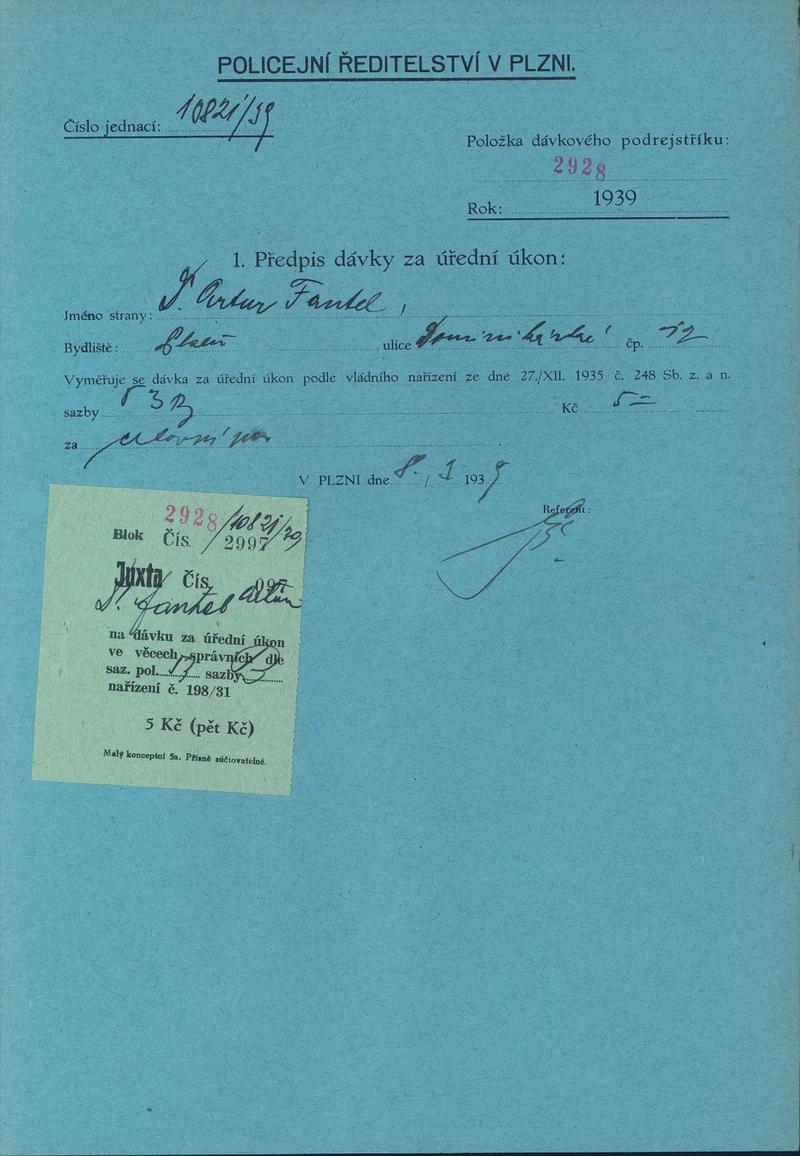 POLICEJNÍ ŘEDITELSTVÍ V PLZNI.
Číslo jednací: 10821/39
Položka dávkového podrejstříku:
2928
Rok: 1939
1. Předpis dávky za úřední úkon:
Jméno strany: Dr Artur Fantel,
Bydliště: Plzeň ulice Dominikánská čp. 12
Vyměřuje se dávka za úřední úkon podle vládního nařízení ze dne 27./XII. 1935 č. 248 Sb. z. a n.
sazby Kč 5 =
za cestovní pas
V PLZNI dne 8. / 1939
Referent:
2928/10821/39
Blok Čís. 2997
Juxta Čís. 097
Dr. Fantel Artur
na dávku za úřední úkon
ve věcech správních dle
saz. pol. sazby
nařízení č. 198/31
5 Kč (pět Kč)
Malý konceptní 5a. Přísně súčtovatelné.